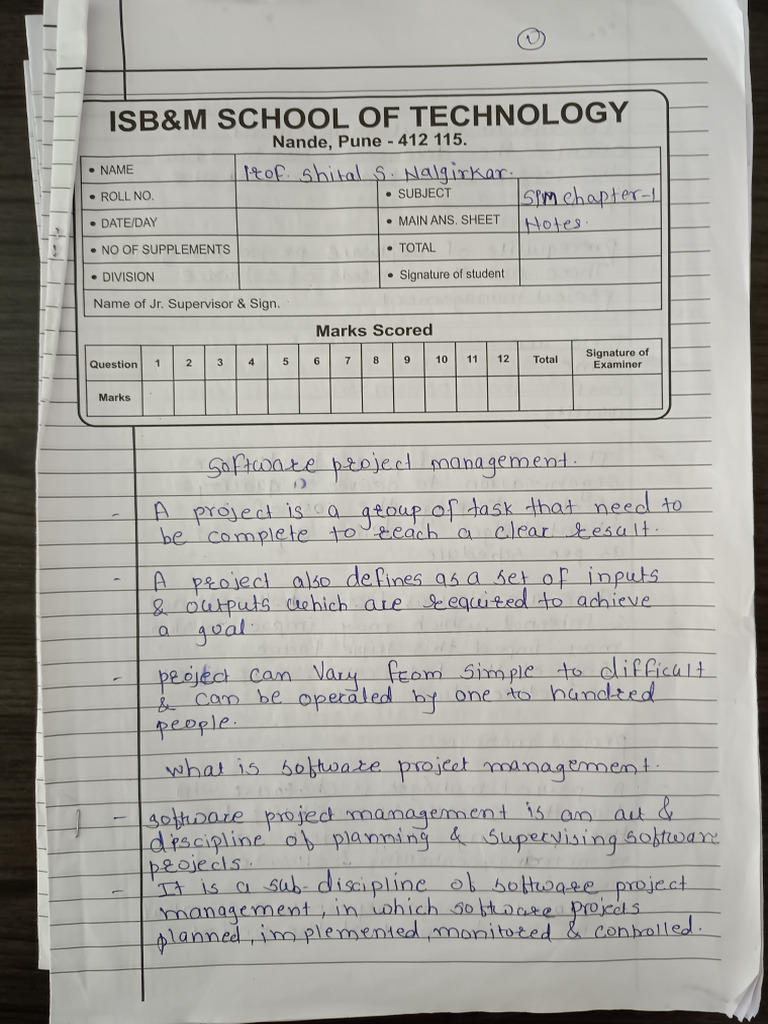 1
ISB&M SCHOOL OF TECHNOLOGY
Nande, Pune - 412 115.
• NAME Prof. Shital S. Nalgirkar.
• ROLL NO. • SUBJECT SPM chapter-1
• DATE/DAY • MAIN ANS. SHEET Notes.
• NO OF SUPPLEMENTS • TOTAL
• DIVISION • Signature of student
Name of Jr. Supervisor & Sign.
Marks Scored
Question 1 2 3 4 5 6 7 8 9 10 11 12 Total Signature of Examiner
Marks
software project management.
- A project is a group of task that need to
be complete to reach a clear result.
- A project also defines as a set of inputs
& outputs which are required to achieve
a goal.
- project can vary from simple to difficult
& can be operated by one to hundred
people.
what is software project management.
- software project management is an art &
discipline of planning & supervising software
projects.
- It is a sub-discipline of software project
management, in which software projects
planned, implemented, monitored & controlled.